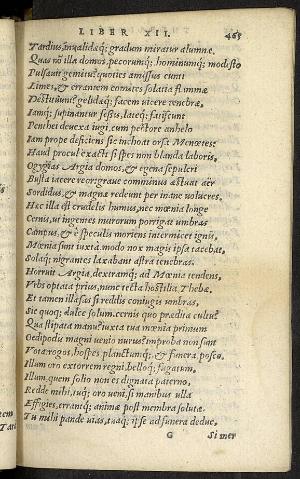 LIBER XII. 465
Tardius, inualidaq; gradum miratur alumnæ.
Quas nō illa domos, pecorumq; hominumq; modesto
Pulsauit gemitu? quoties amissus eunti
Limes, & errantem comites solatia flammæ
Destituunt? gelidaq; facem uicere tenebræ,
Iamq; supinantur fessis, lateq; fatiscunt
Penthei deuexa iugi, cum pectore anhelo
Iam prope deficiens sic inchoat orsa Menœtes:
Haud procul exacti si spes non blanda laboris,
Ogygias Argia domos, & egena sepulcri
Busta iacere reor: graue comminus æstuat aër
Sordidus, & magnæ redeunt per inane uolucres,
Hæc illa est crudelis humus, nec mœnia longe
Cernis, ut ingenteis murorum porrigat umbras
Campus, & è speculis moriens intermicet ignis,
Mœnia sunt iuxta. modo nox magis ipsa tacebat,
Solaq; nigrantes laxabant astra tenebras.
Horruit Argia, dextramq; ad Mœnia tendens,
Vrbs optata prius, nunc tecta hostilia, Thebæ,
Et tamen illæsas si reddis coniugis umbras,
Sic quoq; dulce solum. cernis quo prædita cultu?
Qua stipata manu? iuxta tua mœnia primum
Oedipodæ magni uenio nurus? improba non sunt
Vota. rogos, hospes, planctumq; & funera posco.
Illum oro extorrem regni, belloq; fugatum,
Illum, quem solio non es dignata paterno,
Redde mihi, tuq; oro ueni, si manibus ulla
Effigies, errantq; animæ post membra solutæ.
Tu mihi pande uias, tuaq; ipse ad funera deduc,
G Si mer